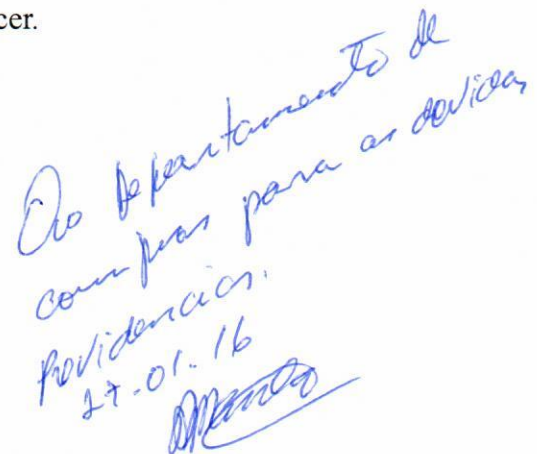 cer.
Ao Departamento de
compras para as devidas
Providencias.
27.01.16